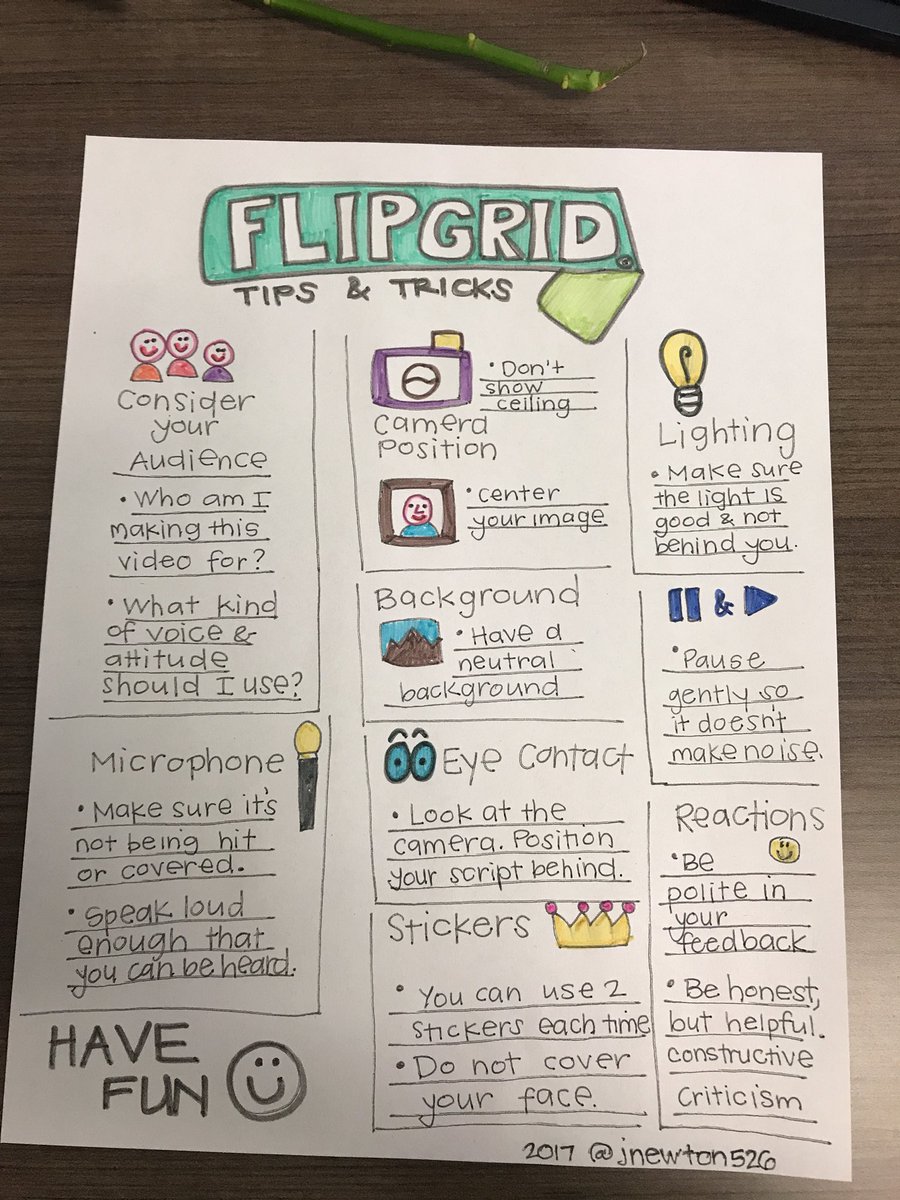 FLIPGRID.
TIPS & TRICKS
Consider
your
Audience
• Who am I
making this
video for?
• What kind
of voice &
attitude
should I use?
Microphone
• Make sure it's
not being hit
or covered.
• Speak loud
enough that
you can be heard.
HAVE
FUN
• Don't
show
ceiling
Camera
Position
• center
your image
Background
• Have a
neutral
background
Eye Contact
• Look at the
camera. Position
your script behind.
Stickers
• You can use 2
stickers each time
• Do not cover
your face.
Lighting
• Make sure
the light is
good & not
behind you.
&
• Pause
gently so
it doesn't
make noise.
Reactions
• Be
polite in
your
feedback
• Be honest,
but helpful.
constructive
criticism
2017 @jnewton526